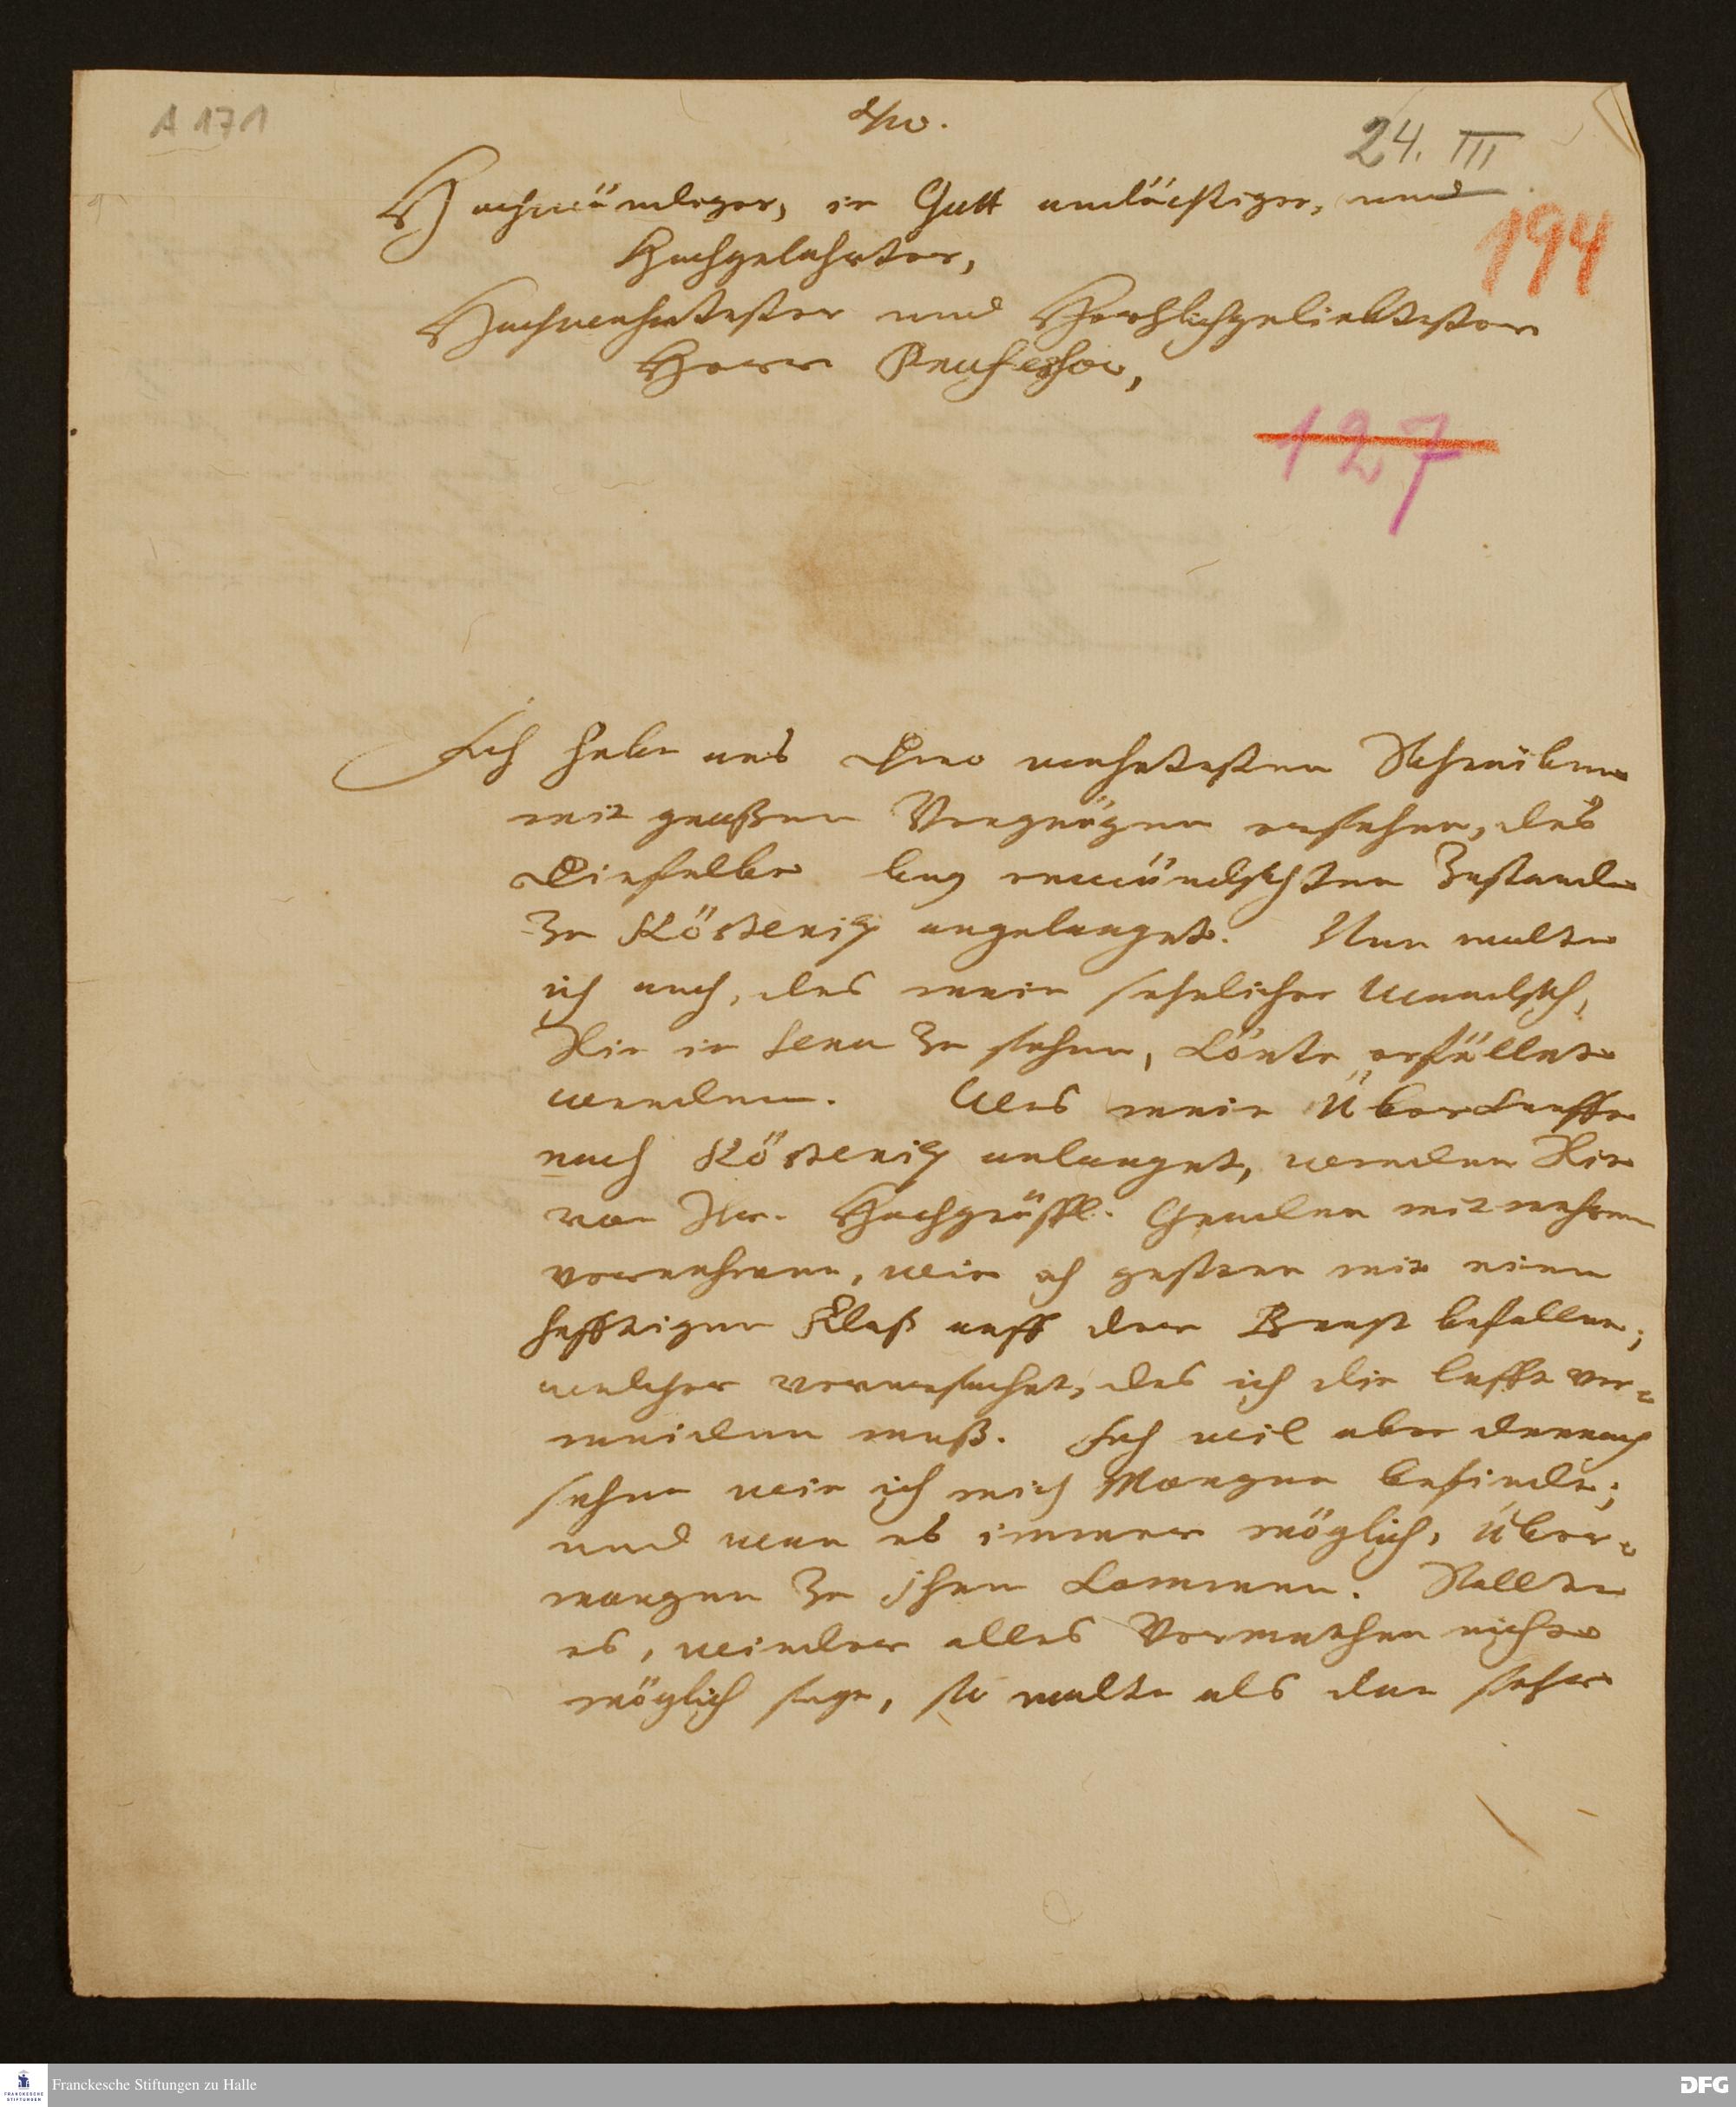 A 171
24. III
Hochwürdiger, in Gott andächtiger, und
194
Hochgelahrter,
Hochwehrtester und Hertzlichgeliebtester
Herr Professor,
127
Ich habe aus Dero wehrtesten Schreiben
mit großem Vergnügen ersehen, das
Dieselbe bey erwündschten Zustande
zu Köstenitz angelanget. Nun wolte
ich auch, das mein sehnlicher Wundsch,
Sie in Jena zu sehen, könte erfüllet
werden. Was mein Überkunfft
nach Köstenitz anlanget, werden Sie
von Ihr. Hochgräffl. Gnaden mit mehrem
vernehmen, wie ich gestern mit einem
hefftigen Fluß auff der Brust befallen,
welcher verursachet, das ich die lufft ver-
meiden muß. Ich wil aber dennoch
sehen wie ich mich Morgen befinde;
und wan es immer möglich, über-
morgen zu ihnen kommen. Sollte
es, wieder alles Vermuthen nicht
möglich seyn, so wolte als dan sehr
Franckesche Stiftungen zu Halle
FRANCKESCHE
STIFTUNGEN
DFG